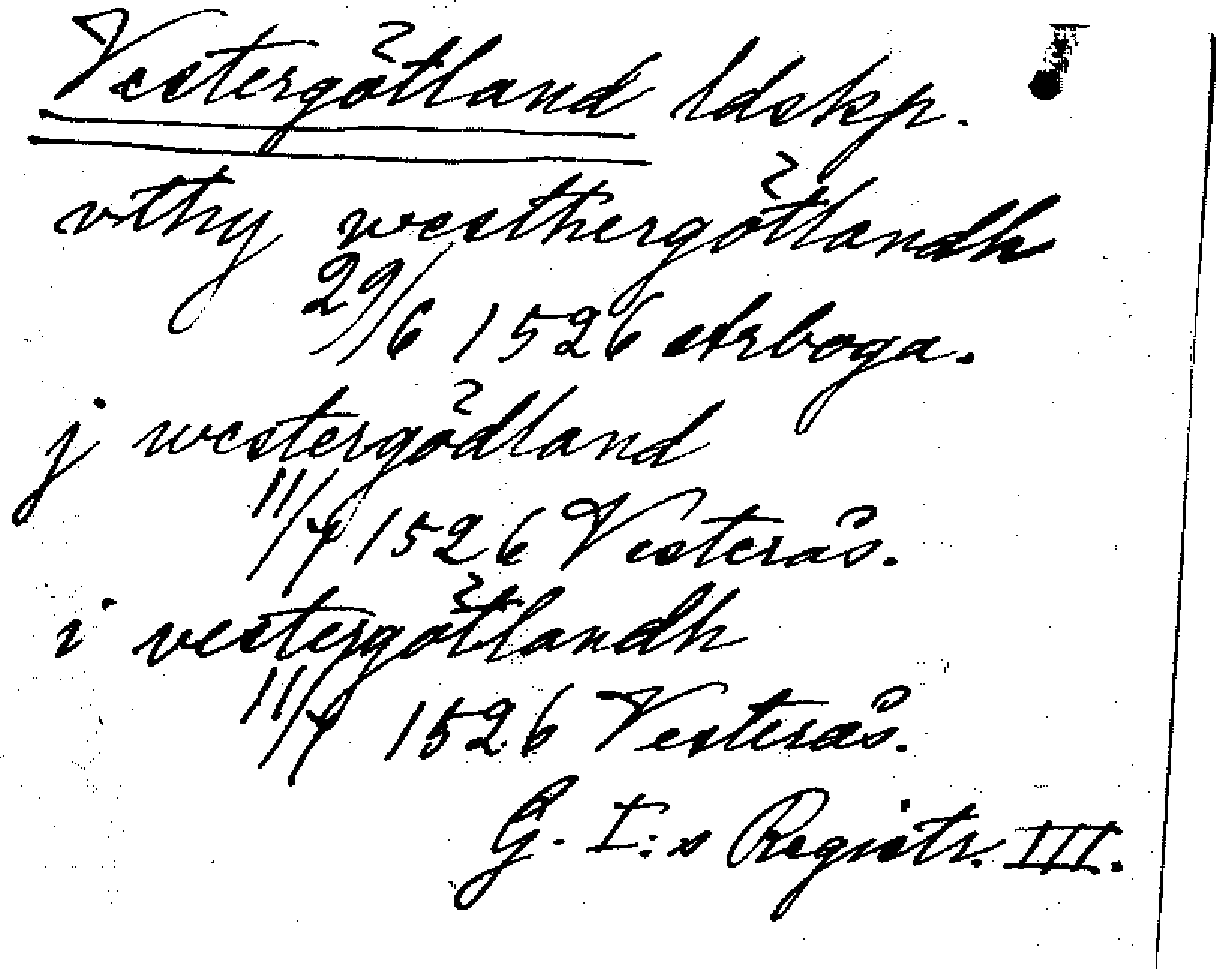 Vestergötland ldskp.
vthy westhergötlandh
29/6 1526 Arboga.
j westergödland
11/7 1526 Vesterås.
i vestergötlandh
11/7 1526 Vesterås.
G. I:s Registr. III.